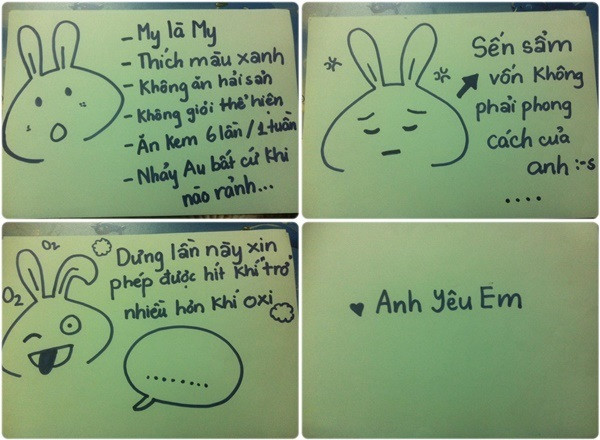 - My là My
- Thích màu xanh
- Không ăn hải sản
- Không giỏi thể hiện
- Ăn kem 6 lần / 1 tuần
- Nhảy Au bất cứ khi
nào rảnh...
Sến sẩm
vốn không
phải phong
cách của
anh :-s
....
O2
O2
Dưng lần này xin
phép được hít khí "trơ"
nhiều hơn khí oxi
........
♥ Anh Yêu Em